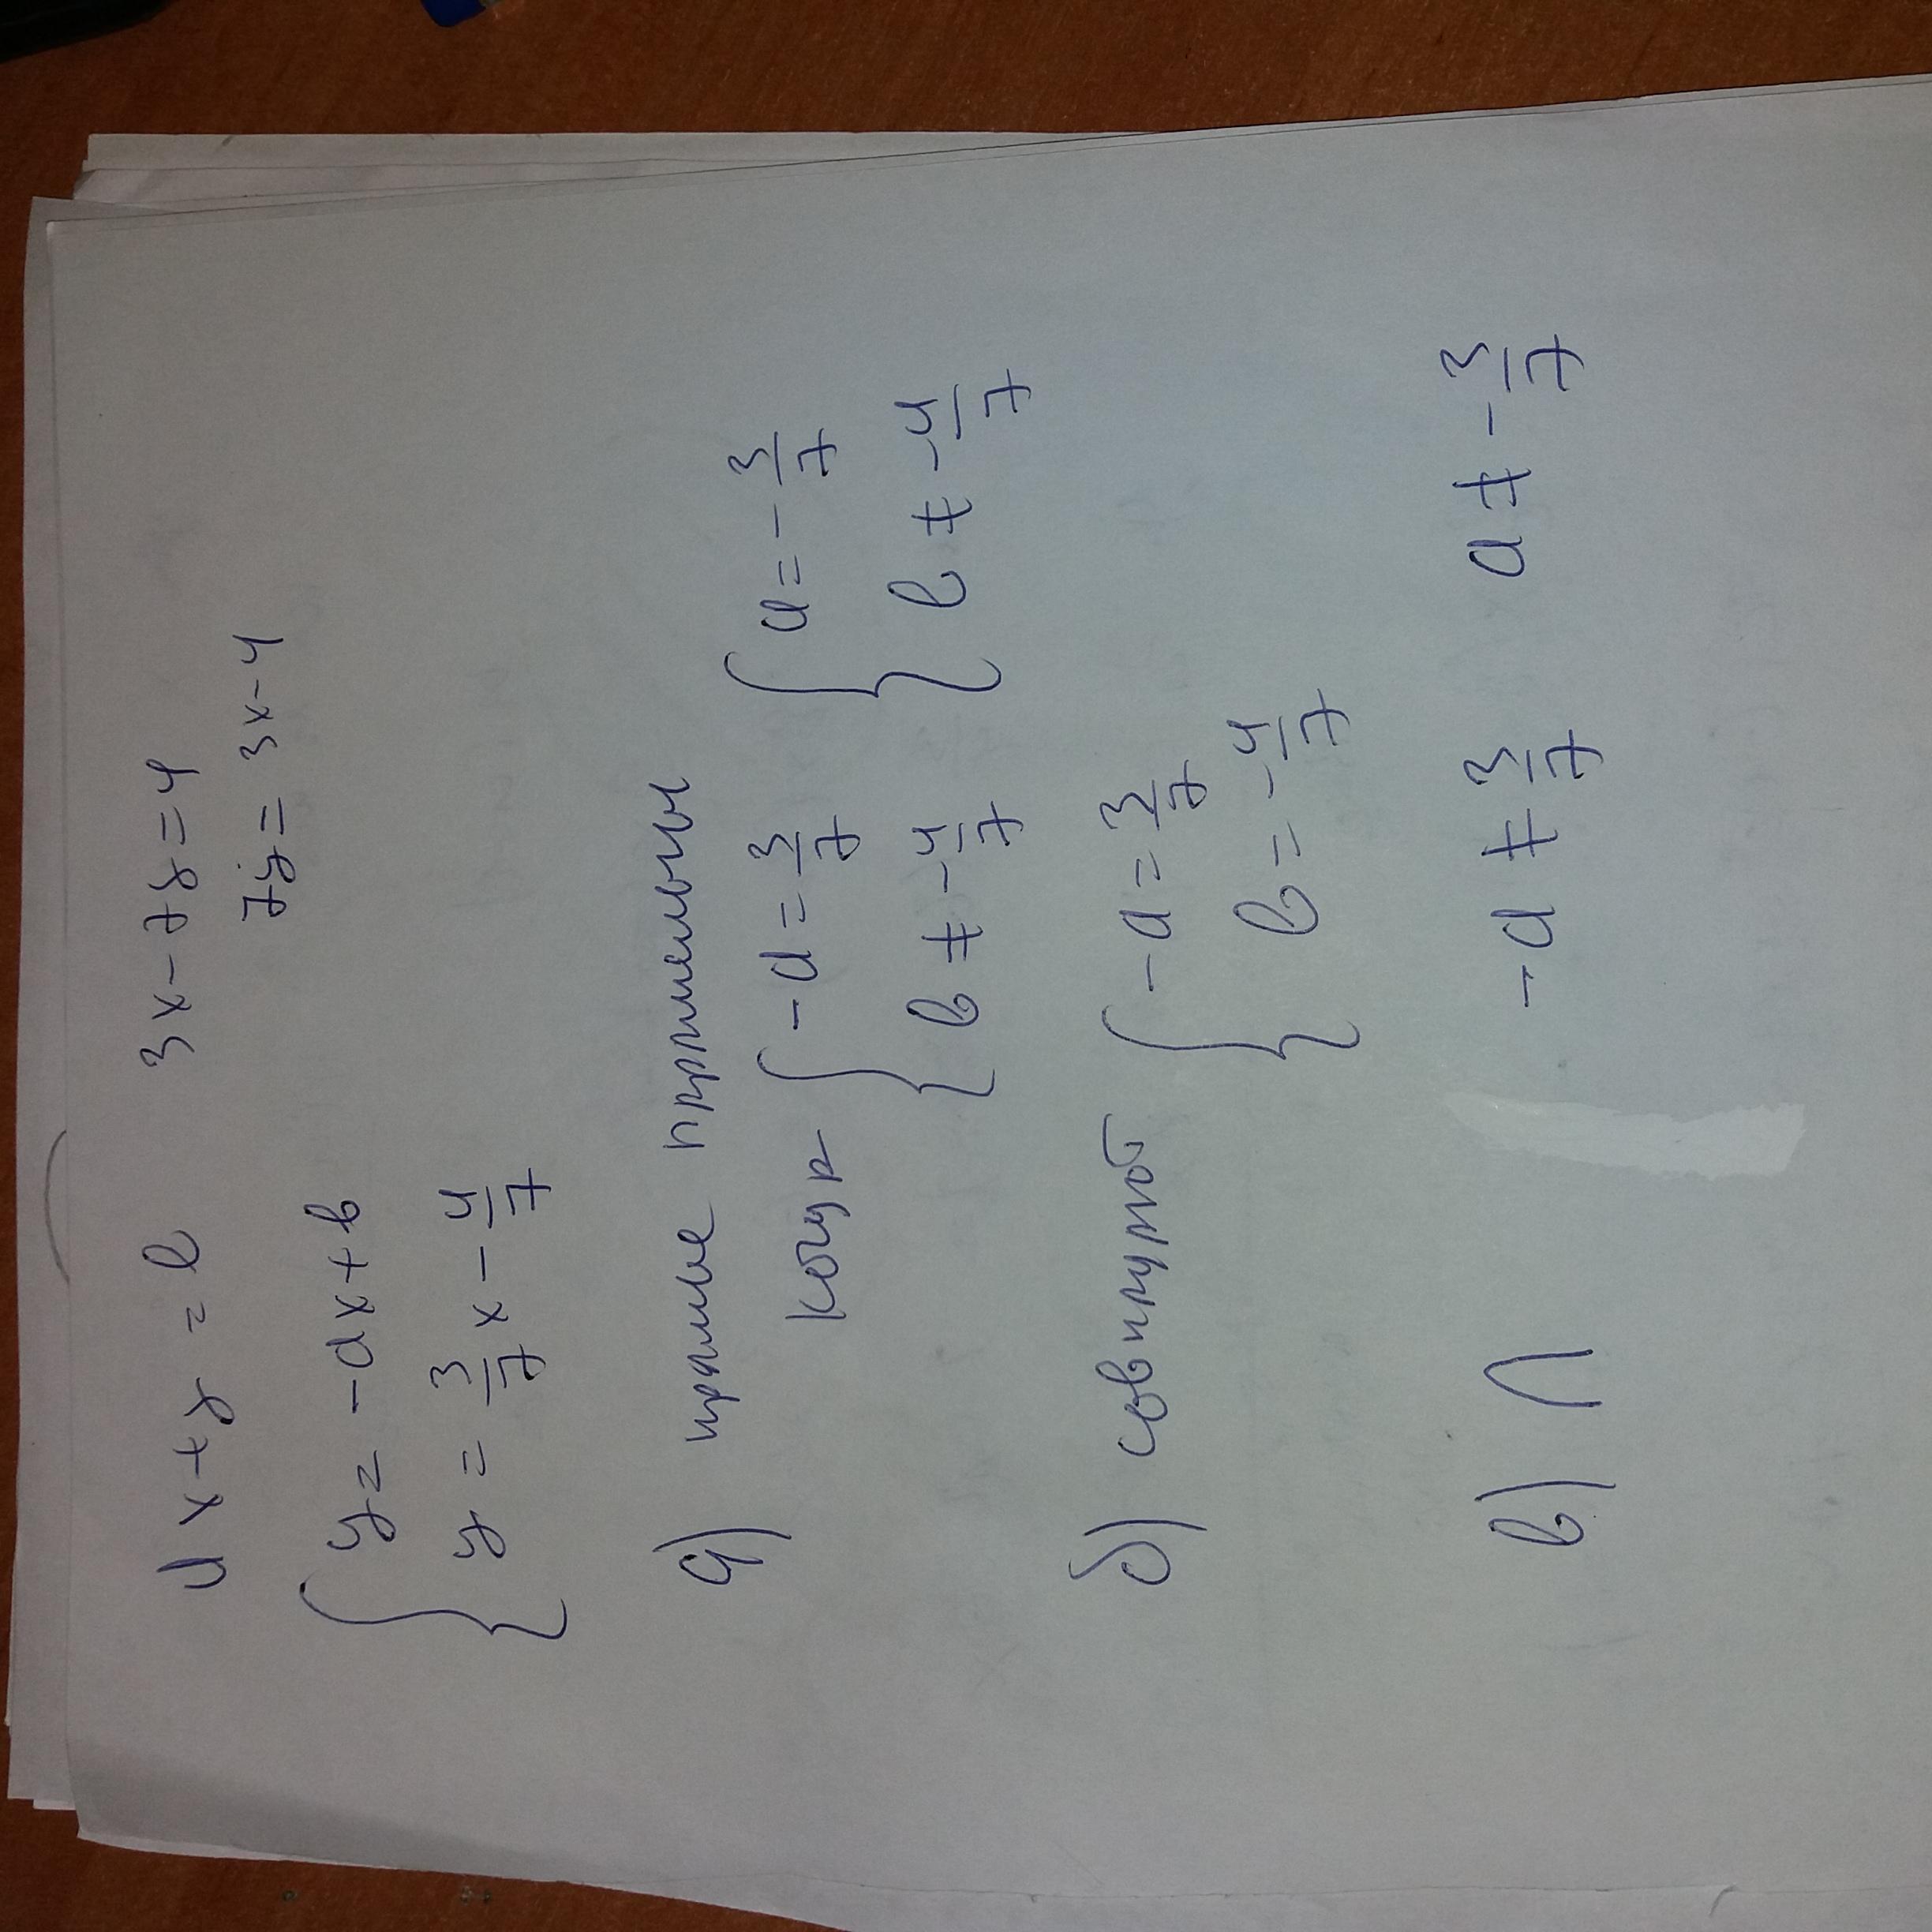 ax+y=b 3x-7y=4
7y=3x-4
{ y=-ax+b
y=3/7x-4/7
а) прямые параллельны
когда { -a=3/7 { a=-3/7
b≠-4/7 b≠-4/7
б) совпадают { -a=3/7
b=-4/7
в) ∩ -a≠3/7 a≠-3/7